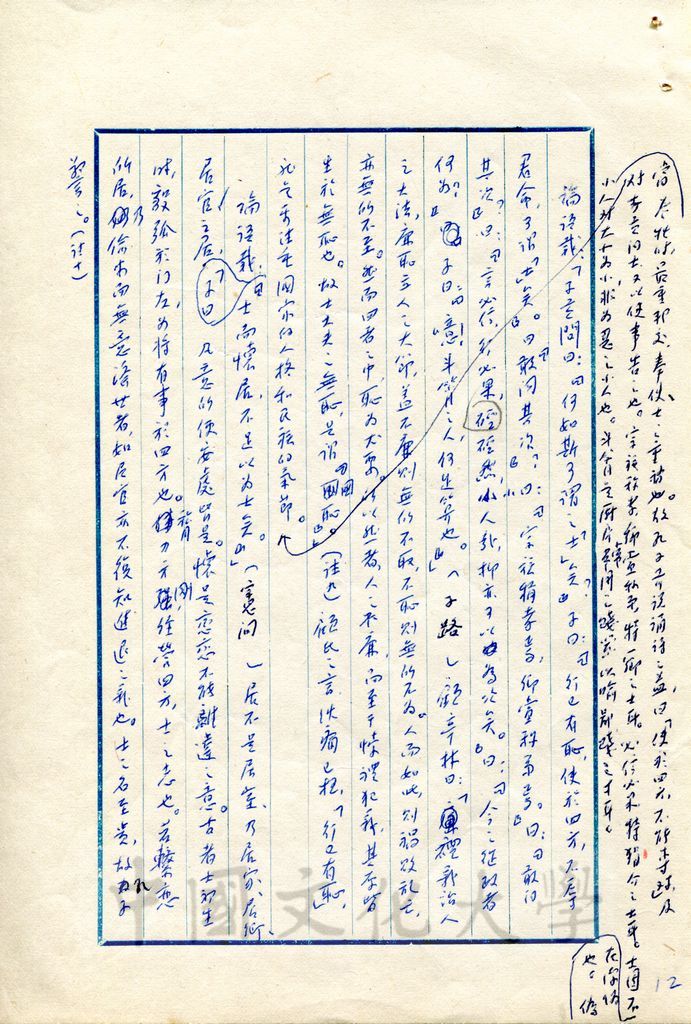 當春秋時,最重邦交,奉使士之重諾也。故孔子
對專
小人
論語載:「子貢問曰:『何如斯可謂之士矣?』子曰:『行己有恥,使於四方,不辱
君命,可謂士矣。』曰:『敢問其次?』曰:『宗族稱孝焉,鄉黨稱弟焉。』曰:『敢問
其次?』曰:『言必信,行必果,硜硜然小人哉,抑亦可以為次矣。』曰:『今之從政者
何如?』子曰:『噫!斗筲之人何足算也。』」(子路)顧亭林曰:「禮義治人
之大法,廉恥立人之大節,蓋不廉則無所不取,不恥則無所不為。人而如此,則禍敗亂亡,
亦無所不至。然而四者之中,恥為尤要。所以然者,人之不廉,而至于悖禮犯義,其原皆
生於無恥也。故士大夫之無恥,是謂國恥。」(註九)顧氏之言伙痛已極,「行己有恥」
就是要注重國家的人格和民族的氣節。
論語載:「士而懷居,不足以為士矣。」(憲問)居不是居室,乃居家、居鄉、
居官之居,及意所便安處皆是。懷是戀戀不能離違之意。古者士初生
時,設弧於門左,為將有事於四方也。膂力方剛,經營四方,士之志也。若繫戀
所居,乃偷而無意濟世者,如居官亦不復知進退之義也。士之名至貴,故孔子
警之。(註十)
12
中國文化大學